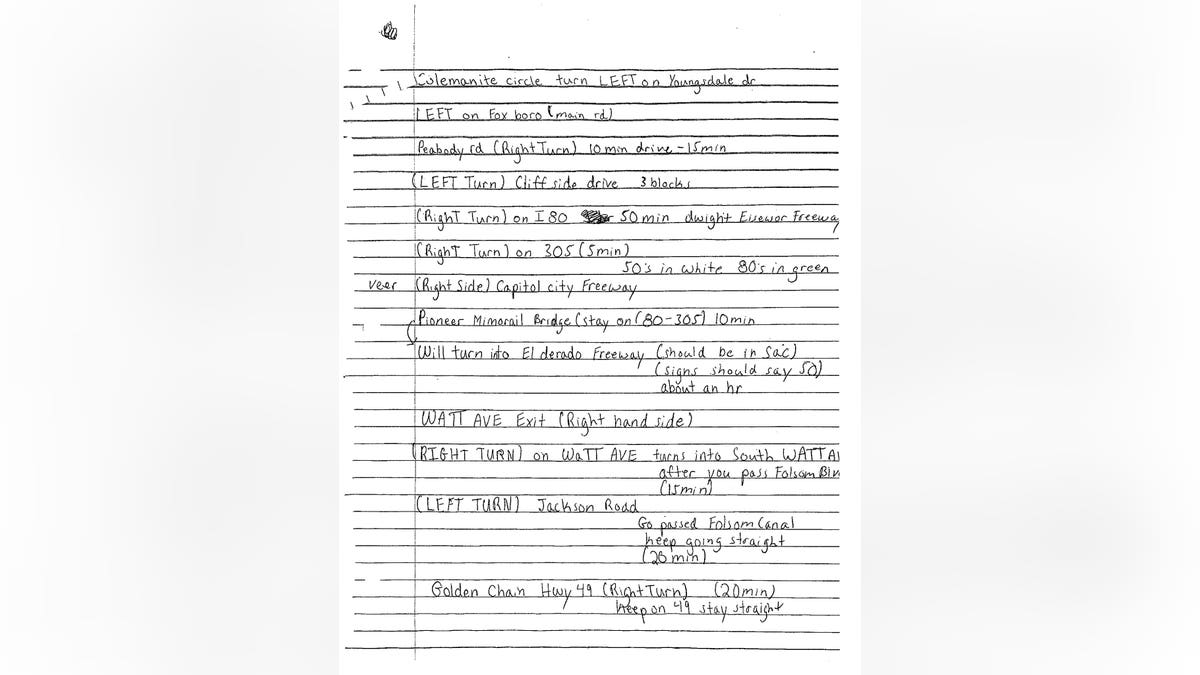 Colemanite circle turn LEFT on Youngsdale dr
LEFT on Foxboro (main rd)
Peabody rd (Right Turn) 10 min drive - 15min
(LEFT Turn) Cliff side drive 3 blocks
(Right Turn) on I 80 50 min dwight Eisewor Freeway
(Right Turn) on 305 (5min)
50's in white 80's in green
veer (Right Side) Capitol city Freeway
Pioneer Mimorail Bridge (stay on (80-305) 10min
Will turn into El derado Freeway (should be in Sac)
(signs should say 50)
about an hr
WATT AVE Exit (Right hand side)
(RIGHT TURN) on WaTT AVE turns into South WATT A
after you pass Folsom Blv
(15min)
(LEFT TURN) Jackson Road
Go passed Folsom Canal
keep going straight
(28 min)
Golden Chain Hwy 49 (Right Turn) (20min)
keep on 49 stay straight